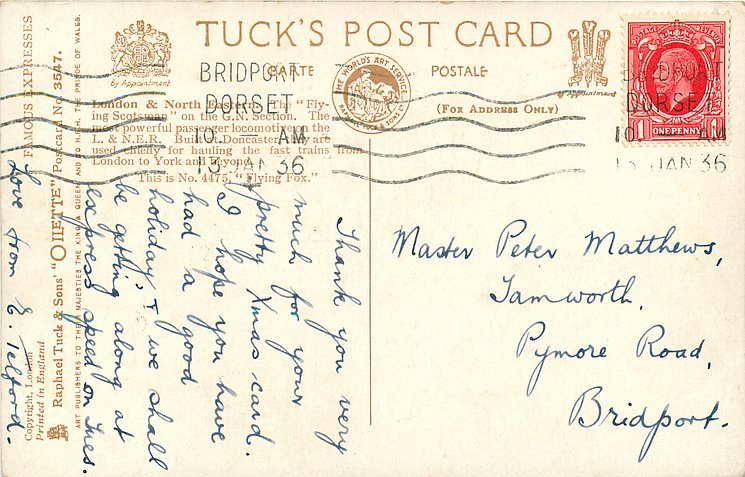 TUCK'S POST CARD
CARTE POSTALE
By Appointment
THE WORLDS ART SERVICE
RAPHAEL TUCK & SONS LTD
By Appointment
(FOR ADDRESS ONLY)
BRIDPORT
DORSET
10 AM
13 JAN 36
BRIDPORT
DORSET
10 AM
13 JAN 36
POSTAGE REVENUE
1 ONE PENNY 1
London & North Eastern. The "Fly-
ing Scotsman" on the G.N. Section. The
most powerful passenger locomotive on the
L. & N.E.R. Built at Doncaster, they are
used chiefly for hauling the fast trains from
London to York and beyond.
This is No. 4475, "Flying Fox."
FAMOUS EXPRESSES
Raphael Tuck & Sons' "OILETTE" Postcard No. 3547.
ART PUBLISHERS TO THEIR MAJESTIES THE KING & QUEEN AND H.R.H. THE PRINCE OF WALES.
Copyright, London
Printed in England
Thank you very
much for your
pretty Xmas card.
I hope you have
had a good
holiday, & we shall
be getting along at
express speed on Tues.
Love from E. Telford.
Master Peter Matthews,
Tamworth,
Pymore Road,
Bridport.